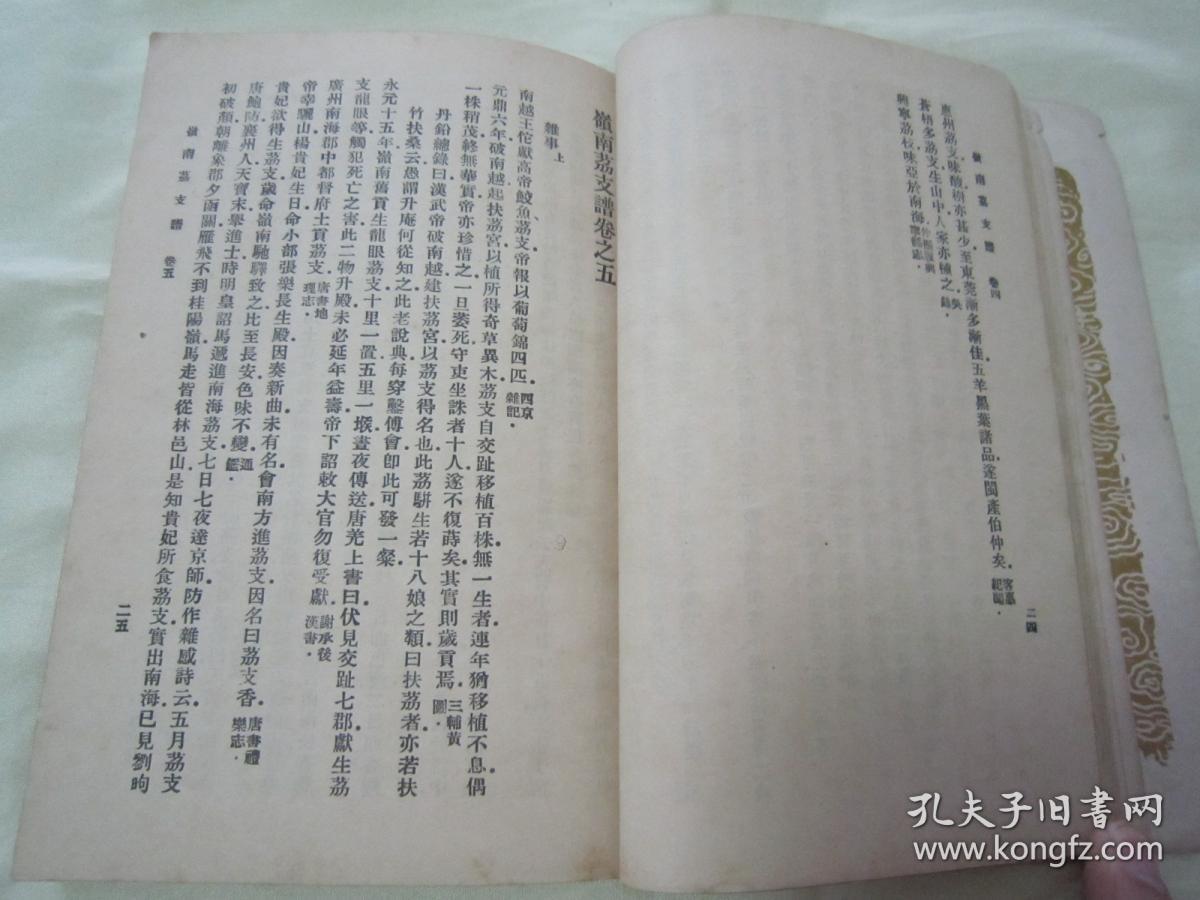 嶺南荔支譜 卷四 二四
廣州荔支味酸樹亦甚少至東莞漸多漸佳五羊黑葉諸品遂閩產伯仲矣
蒼梧多荔支生山中人家亦種之
興寧荔枝味亞於南海
嶺南荔支譜卷之五
雜事上
南越王佗獻高帝鮫魚荔支帝報以葡萄錦四匹。四京雜記。
元鼎六年破南越起扶荔宮以植所得奇草異木荔支自交趾移植百株無一生者連年猶移植不息偶
一株稍茂終無華實帝亦珍惜之一旦萎死守吏坐誅者十人遂不復蒔矣其實則歲貢焉。三輔黃圖。
丹鉛總錄曰漢武帝破南越建扶荔宮以荔支得名也此荔駢生若十八娘之類曰扶荔者亦若扶
竹扶桑云愚謂升庵何從知之此老說典每穿鑿傅會卽此可發一粲
永元十五年嶺南舊貢生龍眼荔支十里一置五里一堠晝夜傳送唐羌上書曰伏見交趾七郡獻生荔
支龍眼等觸犯死亡之害此二物升殿未必延年益壽帝下詔敕大官勿復受獻。謝承後漢書。
廣州南海郡中都督府土貢荔支。唐書地理志。
帝幸驪山楊貴妃生日命小部張樂長生殿因奏新曲未有名會南方進荔支因名曰荔支香。唐書禮樂志。
貴妃欲得生荔支歲命嶺南馳驛致之比至長安色味不變。通鑑。
唐鮑防襄州人天寶末舉進士時明皇詔馬遞進南海荔支七日七夜達京師防作雜感詩云五月荔支
初破顏朝離象郡夕函關雁飛不到桂陽嶺馬走皆從林邑山是知貴妃所食荔支實出南海已見劉昫
嶺南荔支譜 卷五 二五
孔夫子旧书网
www.kongfz.com